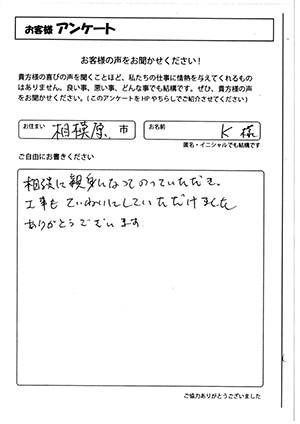 お客様 アンケート
お客様の声をお聞かせください！
貴方様の喜びの声を聞くことほど、私たちの仕事に情熱を与えてくれるもの
はありません。良い事、悪い事、どんな事でも結構です。ぜひ、貴方様の声
をお聞かせください。（このアンケートをHPやちらしでご紹介させてください）
お住まい 相模原 市 お名前 K 様
匿名・イニシャルでも結構です
ご自由にお書きください
相談に親身になってのっていただき、
工事もていねいにしていただけました
ありがとうございます
ご協力ありがとうございました